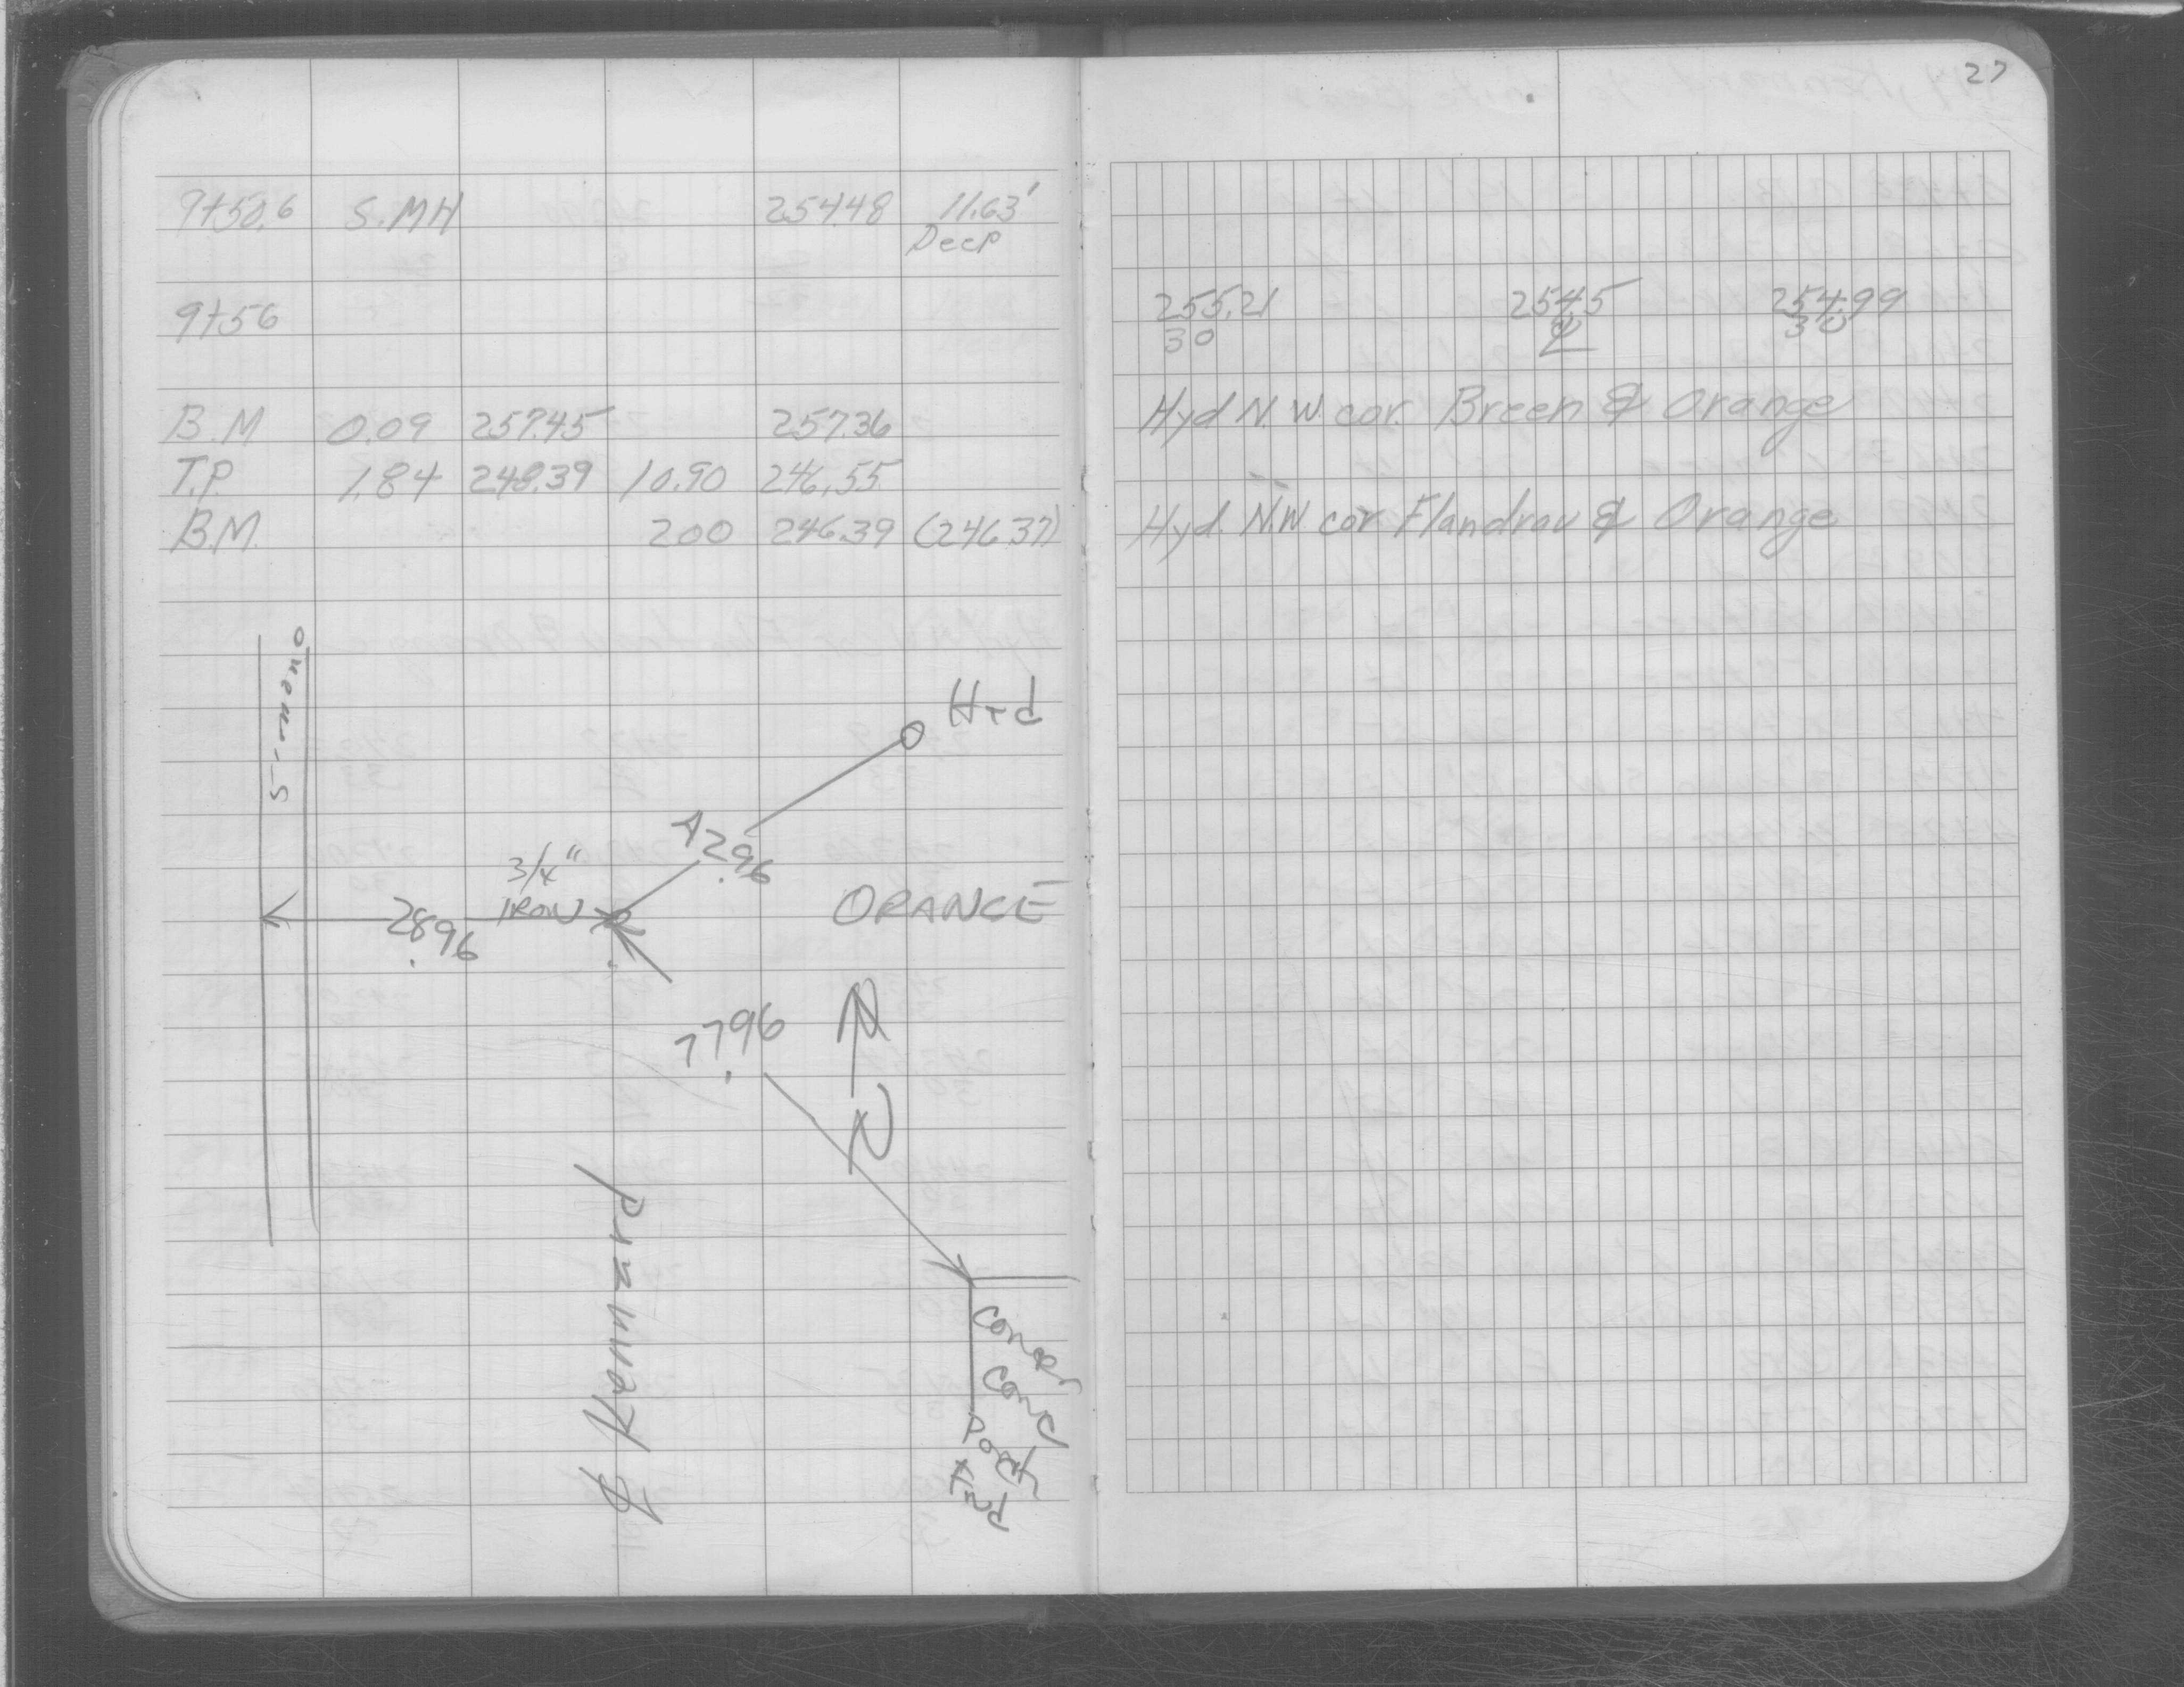 27
9+50.6 S.MH 254.48 11.63'
Deep
9+56 255.21 254.5 254.99
30 ℄ 30
B.M 0.09 257.45 257.36 Hyd N.W. cor. Breen & Orange
T.P. 1.84 248.39 10.90 246.55
B.M. 200 246.39 (246.37) Hyd. N.W cor Flandrau & Orange
Hyd
42.96
3/4"
IRON
28.96
ORANGE
77.96
N
℄ Kennard
Conc
Porch
Fnd